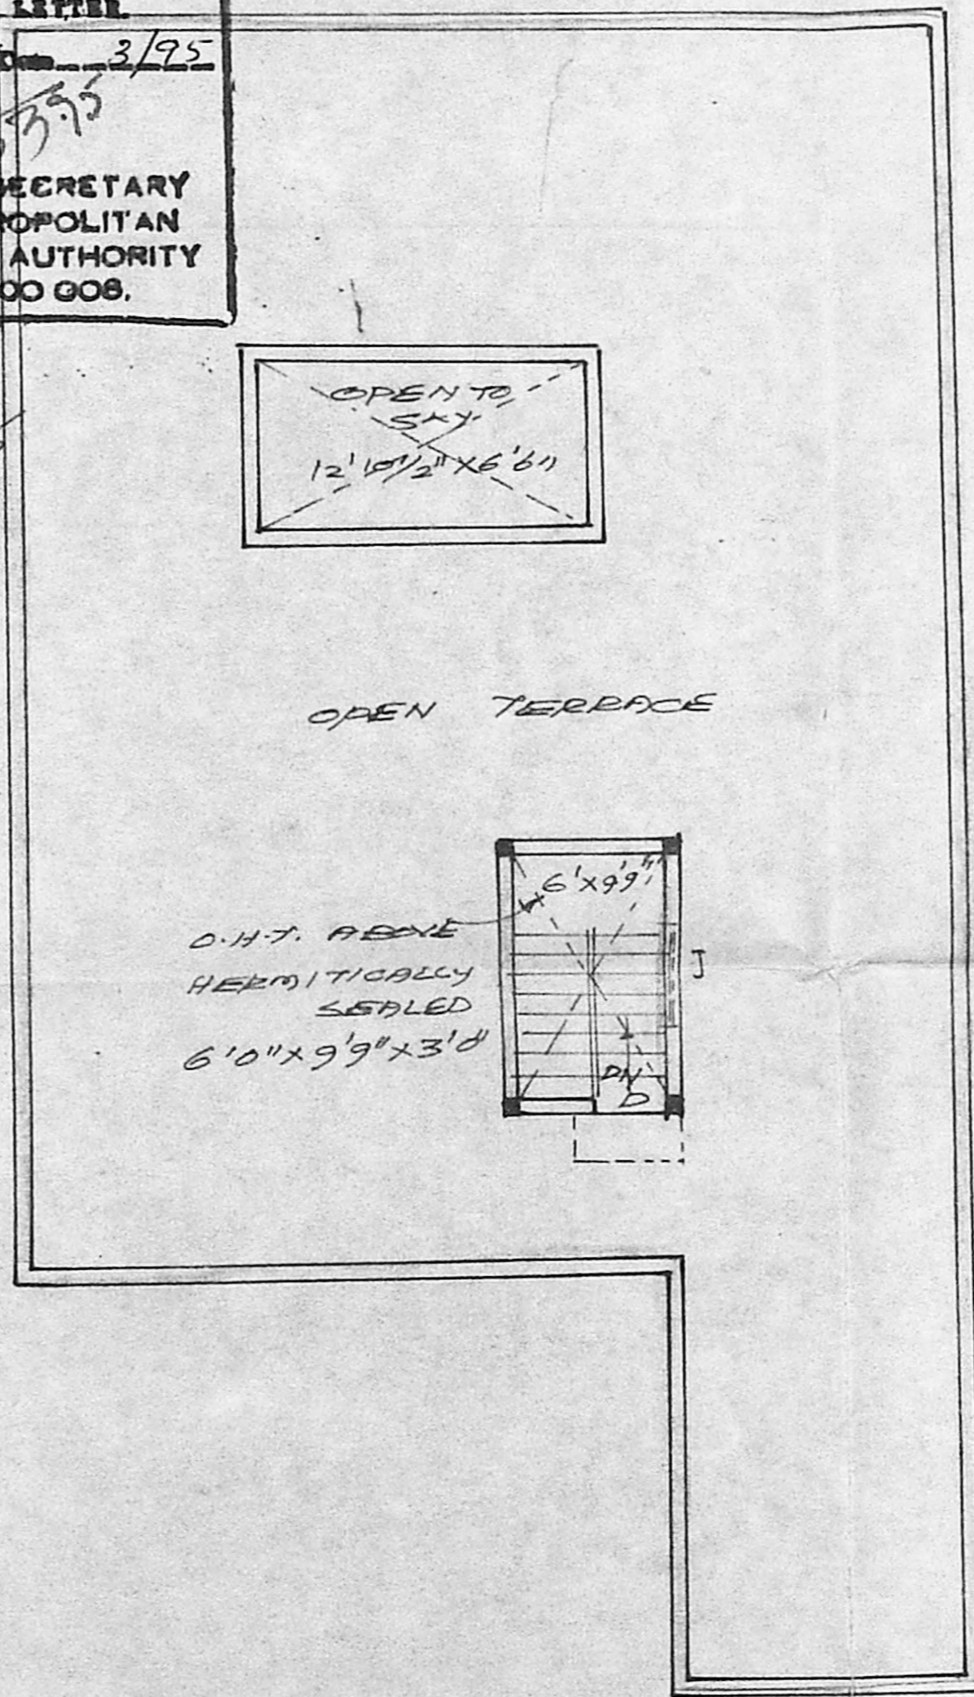 LETTER.
3/95
SECRETARY
ROPOLITAN
AUTHORITY
00 008.
OPEN TO
SKY
12'10 1/2" X 6'6"
OPEN TERRACE
6'X9'9"
O.H.T. ABOVE
HERMITICALLY
SEALED
6'0"X9'9"X3'0"
J
DN
D